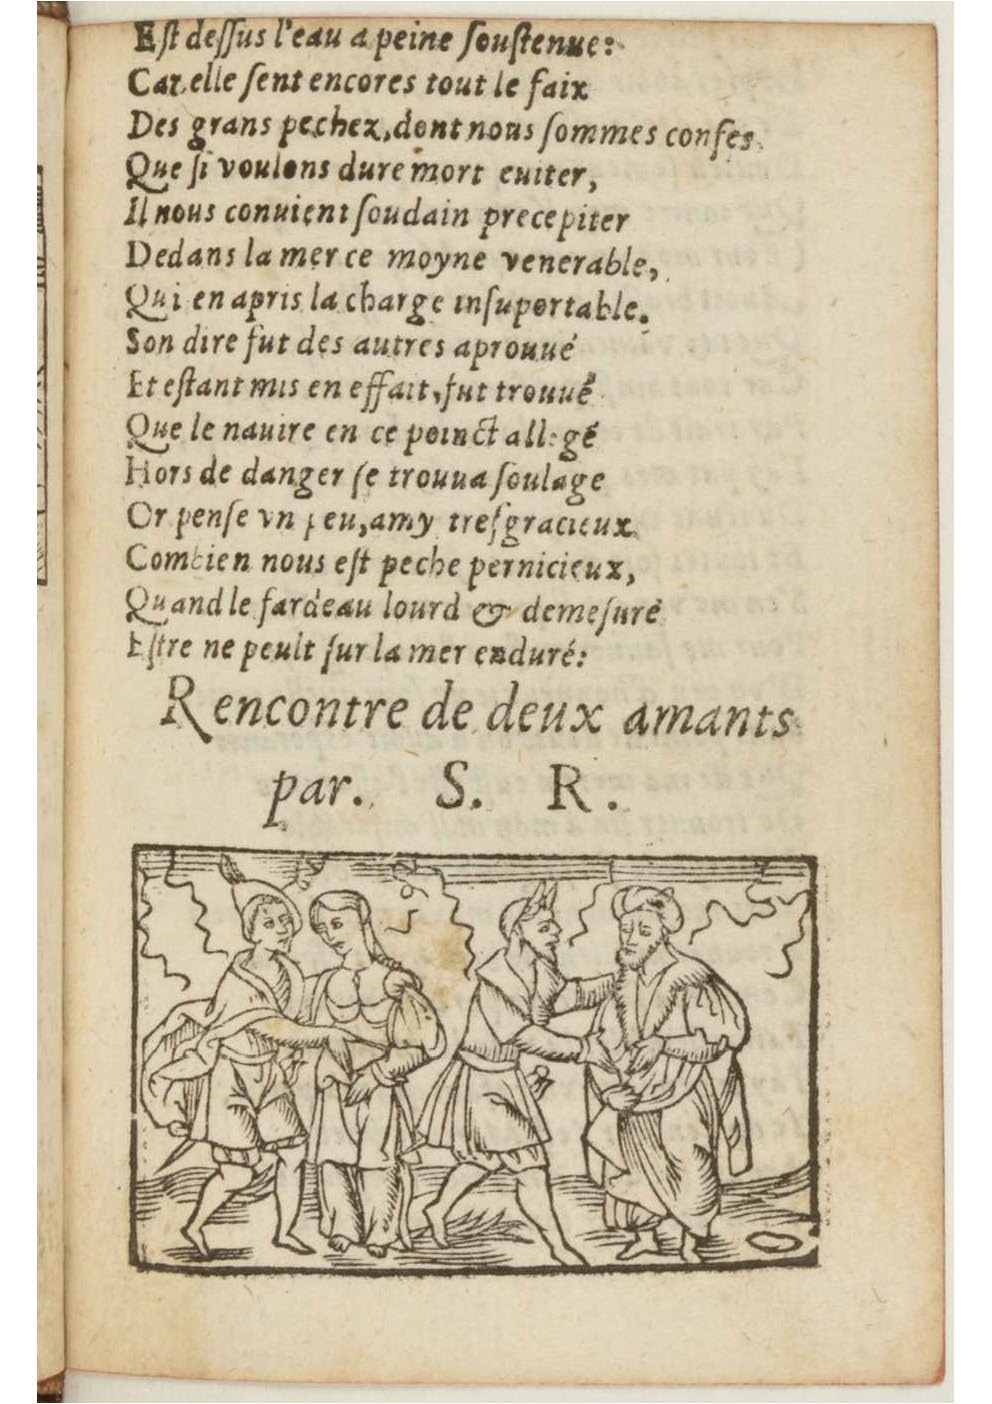 Est dessus l'eau a peine soustenue:
Car elle sent encores tout le faix
Des grans pechez, dont nous sommes confes.
Que si voulons dure mort euiter,
Il nous conuient soudain precepiter
Dedans la mer ce moyne venerable,
Qui en apris la charge insuportable.
Son dire fut des autres aprouué
Et estant mis en effait, fut trouué
Que le nauire en ce poinct allegé
Hors de danger se trouua soulage
Or pense vn peu, amy tresgracieux
Combien nous est peche pernicieux,
Quand le fardeau lourd & demesuré
Estre ne peult sur la mer enduré:
Rencontre de deux amants
par. S. R.